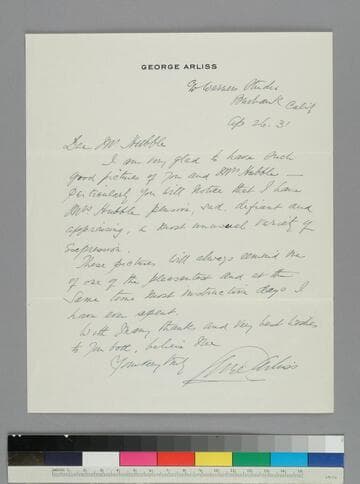 GEORGE ARLISS
c/o Warners Studio
Burbank Calif
Ap 26. 31
Dear Mr Hubble
I am very glad to have such
good pictures of you and Mrs Hubble —
particularly. You will notice that I have
Mrs Hubble pensive, sad, defiant and
appraising, a most unusual variety of
expression.
These pictures will always remind me
of one of the pleasantest and at the
same time most instructive days I
have ever spent.
With many thanks and very best wishes
to you both, believe me
Yours very truly
George Arliss